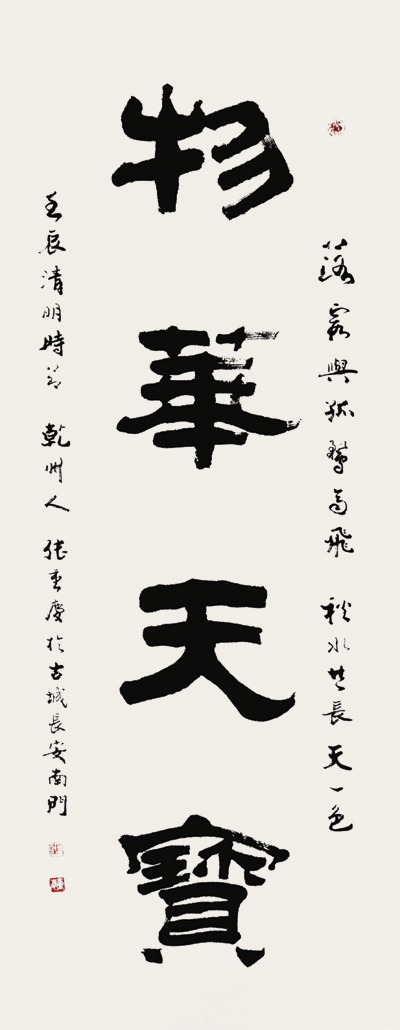 落霞與孤鶩齊飛 秋水共長天一色
物華天寶
壬辰清明時節 乾州人 張重慶於古城長安南門